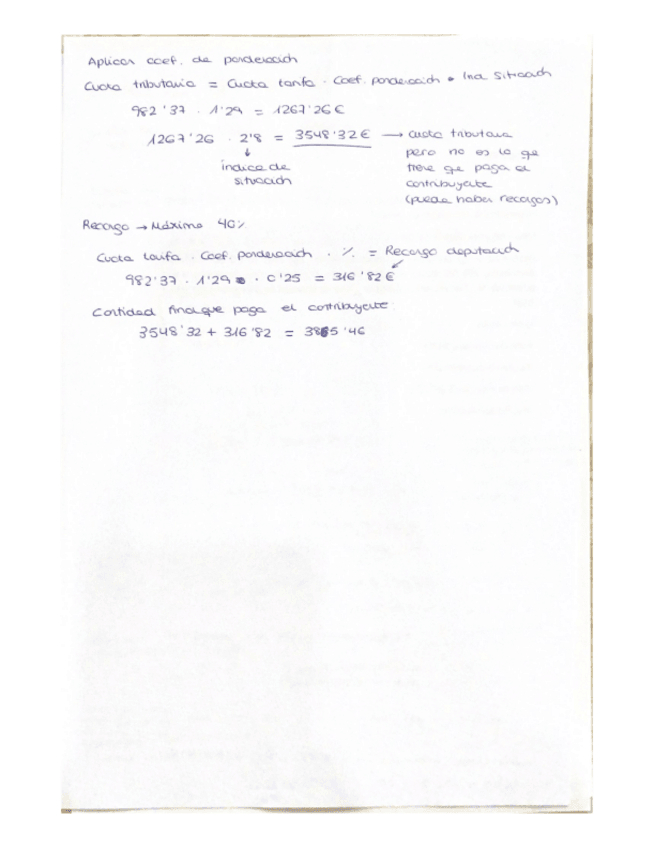 Aplicar coef. de ponderación
Cuota tributaria = Cuota tarifa · Coef. ponderación · Ind. Situación
982'37 · 1'29 = 1267'26 €
1267'26 · 2'8 = 3548'32 € → cuota tributaria
↓ pero no es lo que
índice de tiene qe pagar el
situación contribuyente
(puede haber recargos)
Recargo → Máximo 40%
Cuota tarifa · Coef. ponderación · % = Recargo diputación
982'37 · 1'29 · 0'25 = 316'82 €
Cantidad final que paga el contribuyente:
3548'32 + 316'82 = 3865'46